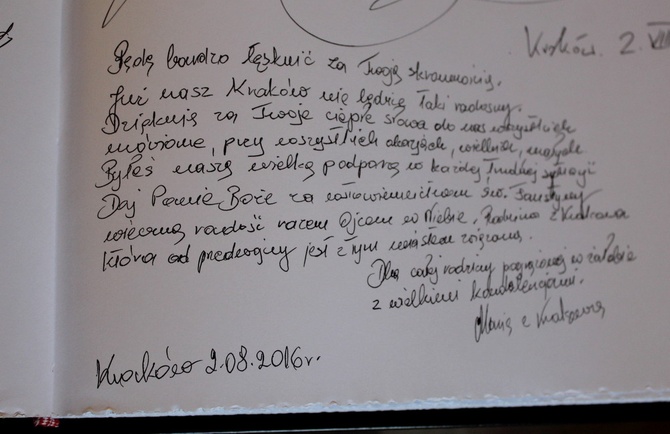 Kraków. 2. VIII
Będę bardzo tęsknić za Twoją skromnością.
Już nasz Kraków nie będzie taki radosny.
Dziękuję za Twoje ciepłe słowa do nas wszystkich
mówione, przy wszystkich okazjach, wielkich, małych
Byłeś naszą wielką podporą w każdej trudnej sytuacji
Daj Panie Boże za wstawiennictwem św. Faustyny
wieczną radość razem Ojcem w Niebie, Rodzina z Krakowa
która od prawdziwy jest z tym miastem związana.
Dla całej rodziny pogrążonej w żałobie
z wielkimi kondolencjami.
Maria z Krakowa
Kraków 2.08.2016r.